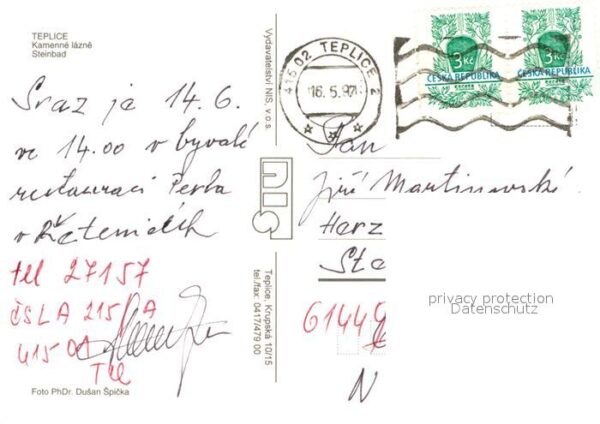 TEPLICE
Kamenné lázně
Steinbad
Sraz je 14. 6.
ve 14.00 v bývalé
restauraci Perla
v Řetenicích
tel 27157
ČSLA 215
415 01
Foto PhDr. Dušan Špička
Vydavatelství NIS, v.o.s.
Teplice, Krupská 10/15
tel./fax: 0417/479 00
415 02 TEPLICE 2
16.5.97
3 Kč
ČESKÁ REPUBLIKA
3 Kč
ČESKÁ REPUBLIKA
Pan
Jiří
Herz
Ste
6144
N
privacy protection
Datenschutz